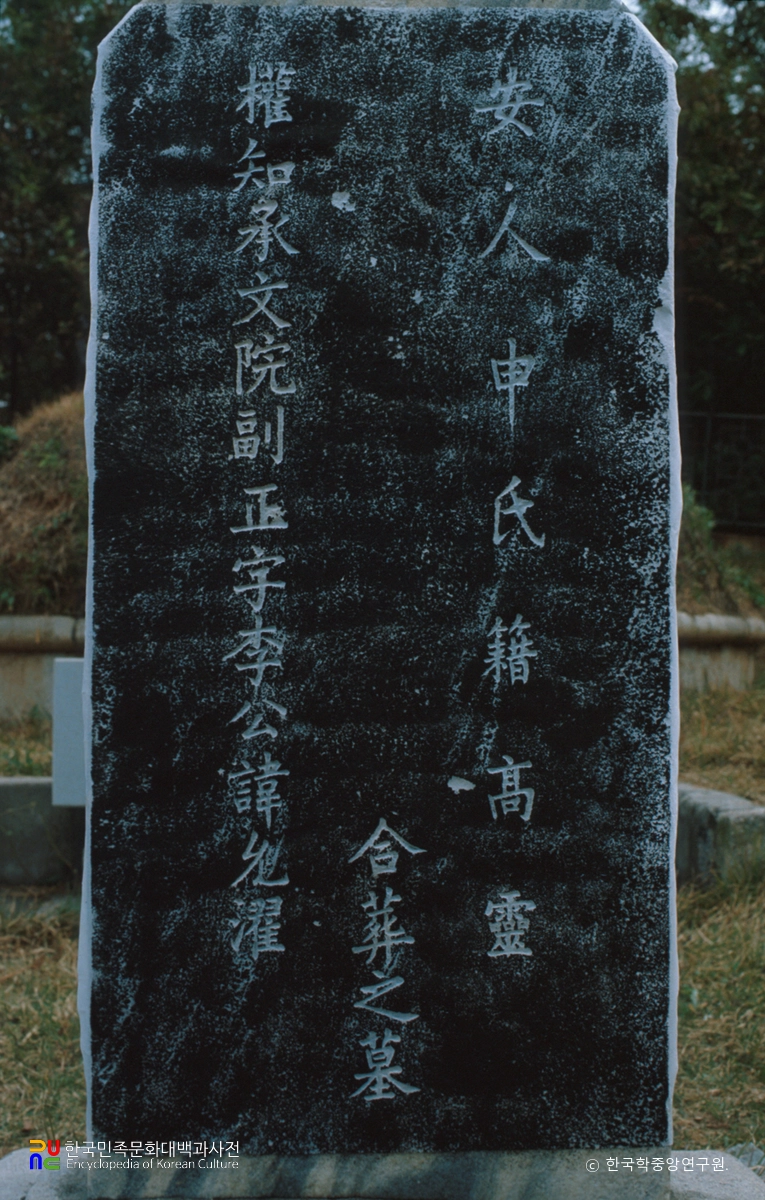 安人申氏籍高靈
合葬之墓
權知承文院副正字李公諱允濯
한국민족문화대백과사전
Encyclopedia of Korean Culture
© 한국학중앙연구원.